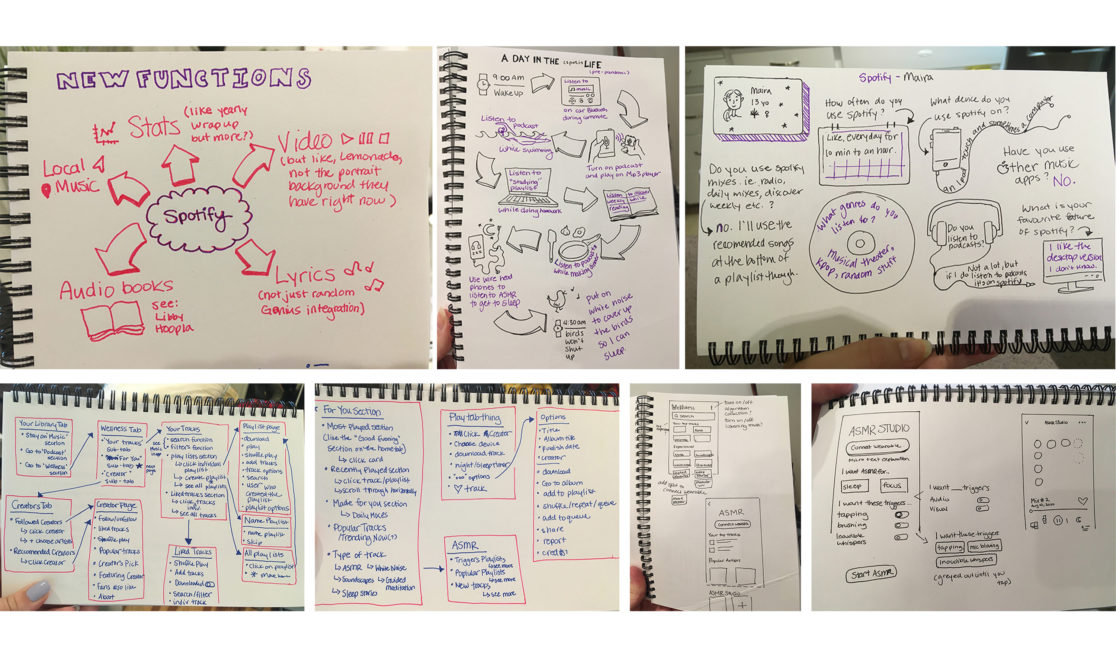 NEW FUNCTIONS
Stats (like yearly
wrap up
but more?)
Video
(but like, Lemonade,
not the portrait
background they
have right now)
Local
Music
Spotify
Audio books
see:
Libby
Hoopla
Lyrics
(not just random
Genius integration)
A DAY IN THE LIFE
(pre-pandemic)
9:00 am
Wake up
Listen to
music
on car Bluetooth
during commute
Listen to
podcast
while swimming
Turn on podcast
and play on Mp3 player
Listen to
"studying"
playlist
while doing homework
Listen to
weekly while
reading
Listen to podcast
while making dinner
Use wire head
phones to
listen to ASMR
to get to sleep
4:30 am
birds
won't
shut
up
put on
white noise
to cover up
the birds
so I can
sleep
Spotify - Maira
Maira
13 yo
How often do you
use Spotify?
Like, everyday for
10 min to an hour.
What device do you
use spotify on?
an ipod touch and sometimes a computer
Have you use
other music
apps?
NO.
Do you use Spotify
mixes. i.e. radio,
daily mixes, discover
weekly etc.?
no. I'll use the
recomended songs
at the bottom of
a playlist though.
What genres do you
listen to?
Musical theater,
kpop, random stuff
Do you
listen to
podcasts?
Not a lot, but
if I do listen to podcasts
it's on spotify
What is your
favourite feature
of spotify?
I like the
desktop version
I don't know.
Your Library Tab
• Stay on "Music"
section
• Go to "Podcast"
section
• Go to "Wellness"
section
Wellness Tab
• "Your tracks"
Sub-tab
• "For You"
Sub-tab
• "Creator"
Sub-tab
Your Tracks
• search function
• filters function
• playlists section
↳ click individual
playlist
↳ create playlist
↳ see all playlists
• Liked tracks section
↳ click tracks
↳ see all tracks
Playlist page
• download
• play
• shuffle play
• add tracks
• track options
• search
• user who
created the
playlist
• playlist options
Creators Tab
• Followed Creators
↳ click creator
↳ + choose artists
• Recommended Creators
↳ click creator
Creator Page
• Follow/unfollow
• Liked tracks
• Shuffle play
• Popular tracks
• Creator's Pick
• Featuring Creator
• Fans also like
• About
Liked Tracks
• Shuffle Play
• Add tracks
• Downloaded
• Search/filter
• indiv track
Name Playlist
• name playlist
• skip
All playlists
• click on playlist
For You Section
• Most Played section
(like the "Good Evening"
section on the home tab)
↳ click card
• Recently Played section
↳ click track/playlist
↳ scroll through horizontally
• Made for you section
↳ Daily Mixes
• Popular Tracks
/Trending Now(?)
• Type of track
↳ ASMR ↳ White Noise
↳ Soundscapes ↳ Guided
meditation
↳ Sleep stories
Play tab-thing
• Creator
• Choose device
• download track
• night/sleep timer
• "..." options
• ♡ track
ASMR
• Triggers Playlists
↳ see more
• Popular Playlists
↳ see more
• New tracks
↳ see more
Options
• Title
• Album title
• publish date
• creator
• download
• Go to album
• add to playlist
• shuffle/repeat/queue
• add to queue
• share
• report
• credits
Wellness
Search
turn on/off
algorithm
collection?
turn on/off
listening music?
add quiz to
connect wearable
ASMR
Connect wearable
Your top tracks
Popular Artists
ASMR Studio
ASMR STUDIO
Connect Wearable
micro text explanation
I want ASMR for...
sleep
focus
I want these triggers
tapping
brushing
inaudible
whispers
Start ASMR
I want ___ triggers
Audio
Visual
I want these triggers
tapping
mic blowing
inaudible whispers
(greyed out until you
tap)
ASMR Studio
Mix #2